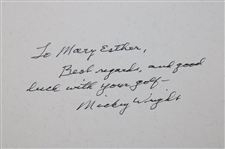 To Mary Esther,
Best regards, and good
luck with your golf —
Mickey Wright